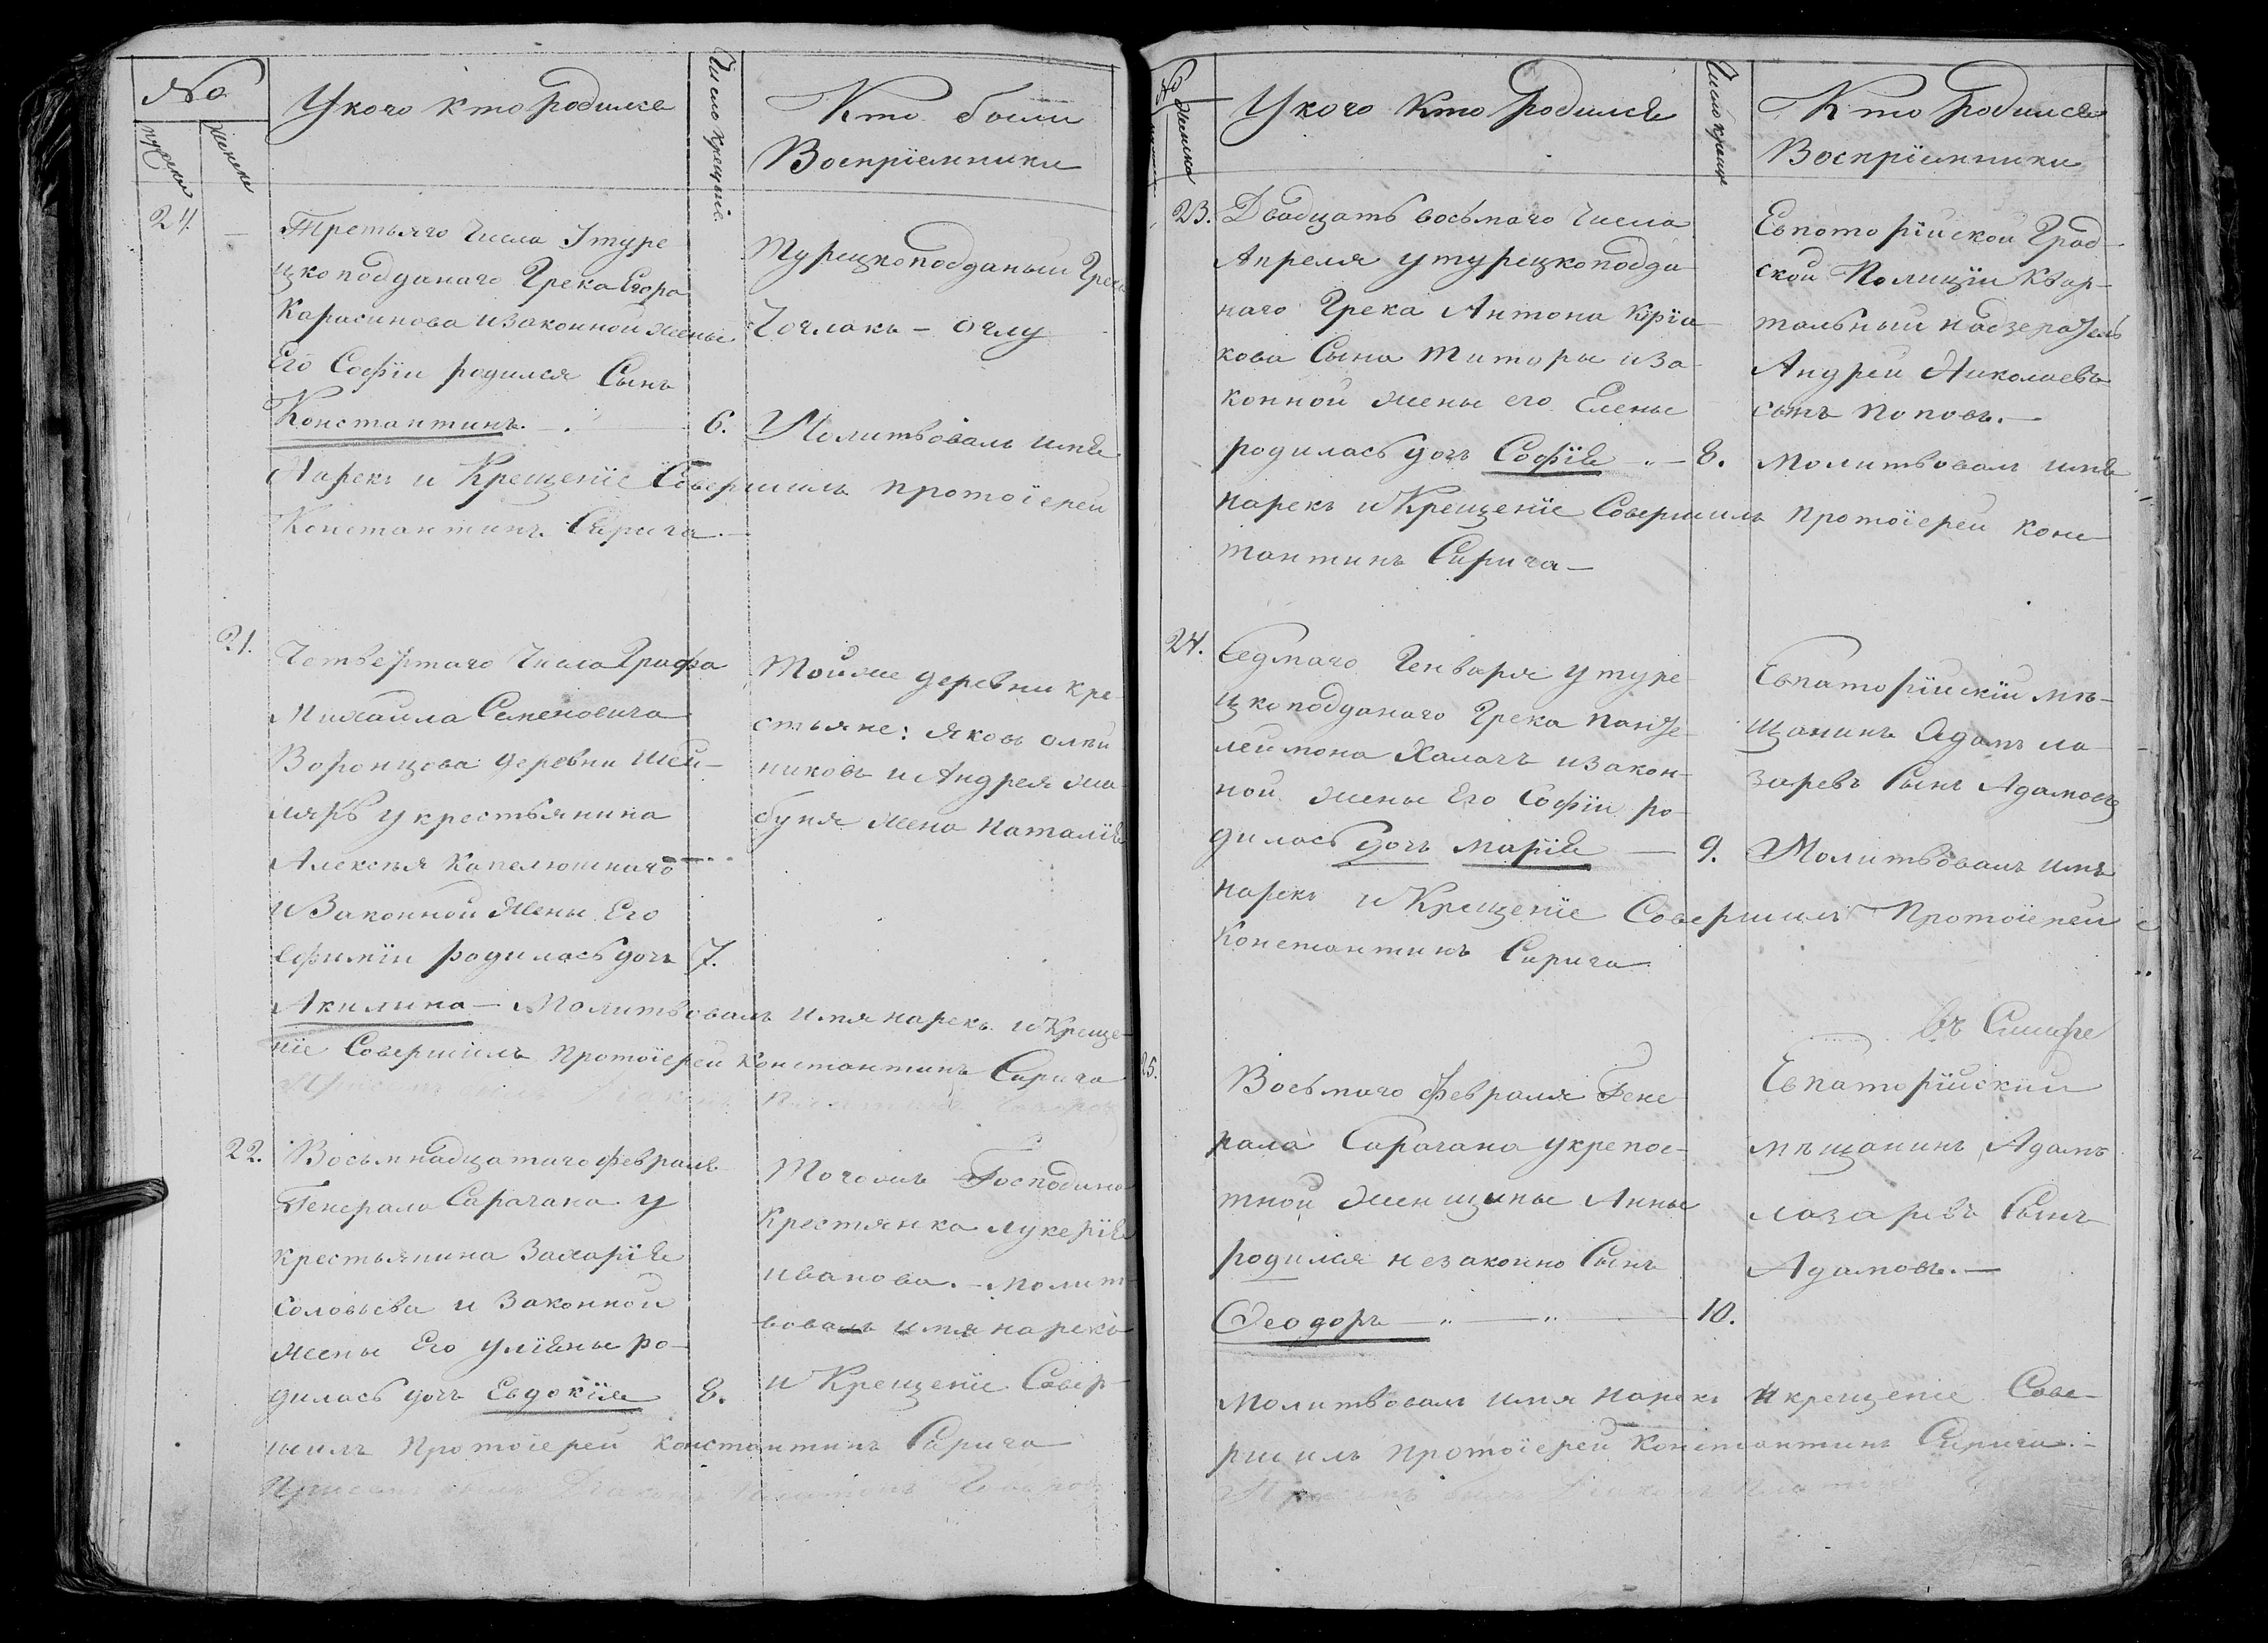 No
мужеска
женска
У кого кто родился
Число крещенія
Кто были
Воспріемники
24. —
Третьяго числа у туре
цкоподданаго Грека Егора
Карасинова и законной жены
Его Софіи родился Сынъ
Константинъ. — 6.
Турецкоподданый Грекъ
оглу
Молитвовалъ имя
Нарекъ и Крещеніе Совершилъ протоіерей
Константинъ Сирига —
21.
Четвертаго числа Графа
Михаила Семеновича
Воронцова деревни Шей-
ляръ у крестьянина
Алексѣя Капелюшнаго
и Законной Жены Его
Ефиміи родилась дочь 7.
Тойже деревни кре-
стьяне: Яковъ Олѣй
никовъ и Андрея
жена Наталія
Акилина — Молитвовалъ имя нарекъ и Креще-
ніе Совершилъ протоіерей Константинъ Сирига
22.
Восьмнадцатаго февраля
Генерала Сарачана у
крестьянина Захарія
Соловьева и Законной
жены Его Уліяны ро-
дилась дочь Евдокія 8.
Тогожъ Господина
Крестянка Лукерія
Иванова. — Молит-
вовалъ имя нарекъ
и Крещеніе Совер-
шилъ протоіерей Константинъ Сирига
женска
У кого кто родился
Число креще
Кто родился
Воспріимники
23.
Двадцать восьмаго числа
Апреля у турецкоподда-
наго Грека Антона Кріа
кова Сына Титоры и за-
конной жены его Елены
родилась дочь Софія — 8.
Евпаторійской Град-
ской Полиціи Квар-
тальный надзератель
Андрей Николаевъ
сынъ Поповъ. —
Молитвовалъ имя
нарекъ и Крещеніе Совершилъ протоіерей Конс
тантинъ Сирига —
24.
Седмаго Генваря у туре-
цкоподданаго Грека Панте-
леймона Халачъ и закон-
ной жены Его Софіи ро-
дилась дочь Марія — 9.
Евпаторійскій мѣ-
щанинъ Адамъ Ла-
заревъ Сынъ Адамовъ
Молитвовалъ имя
нарекъ и Крещеніе Совершилъ Протоіерей
Константинъ Сирига
25.
Восьмаго февраля Гене
рала Сарачана у крепос-
тной женщины Анны
родился незаконно Сынъ
Феодоръ — „ — „ — 10.
въ
Евпаторійскій
мѣщанинъ Адамъ
Лазаревъ Сынъ
Адамовъ. —
Молитвовалъ имя нарекъ и крещеніе Сове-
ршилъ протоіерей Константинъ Сирига. —